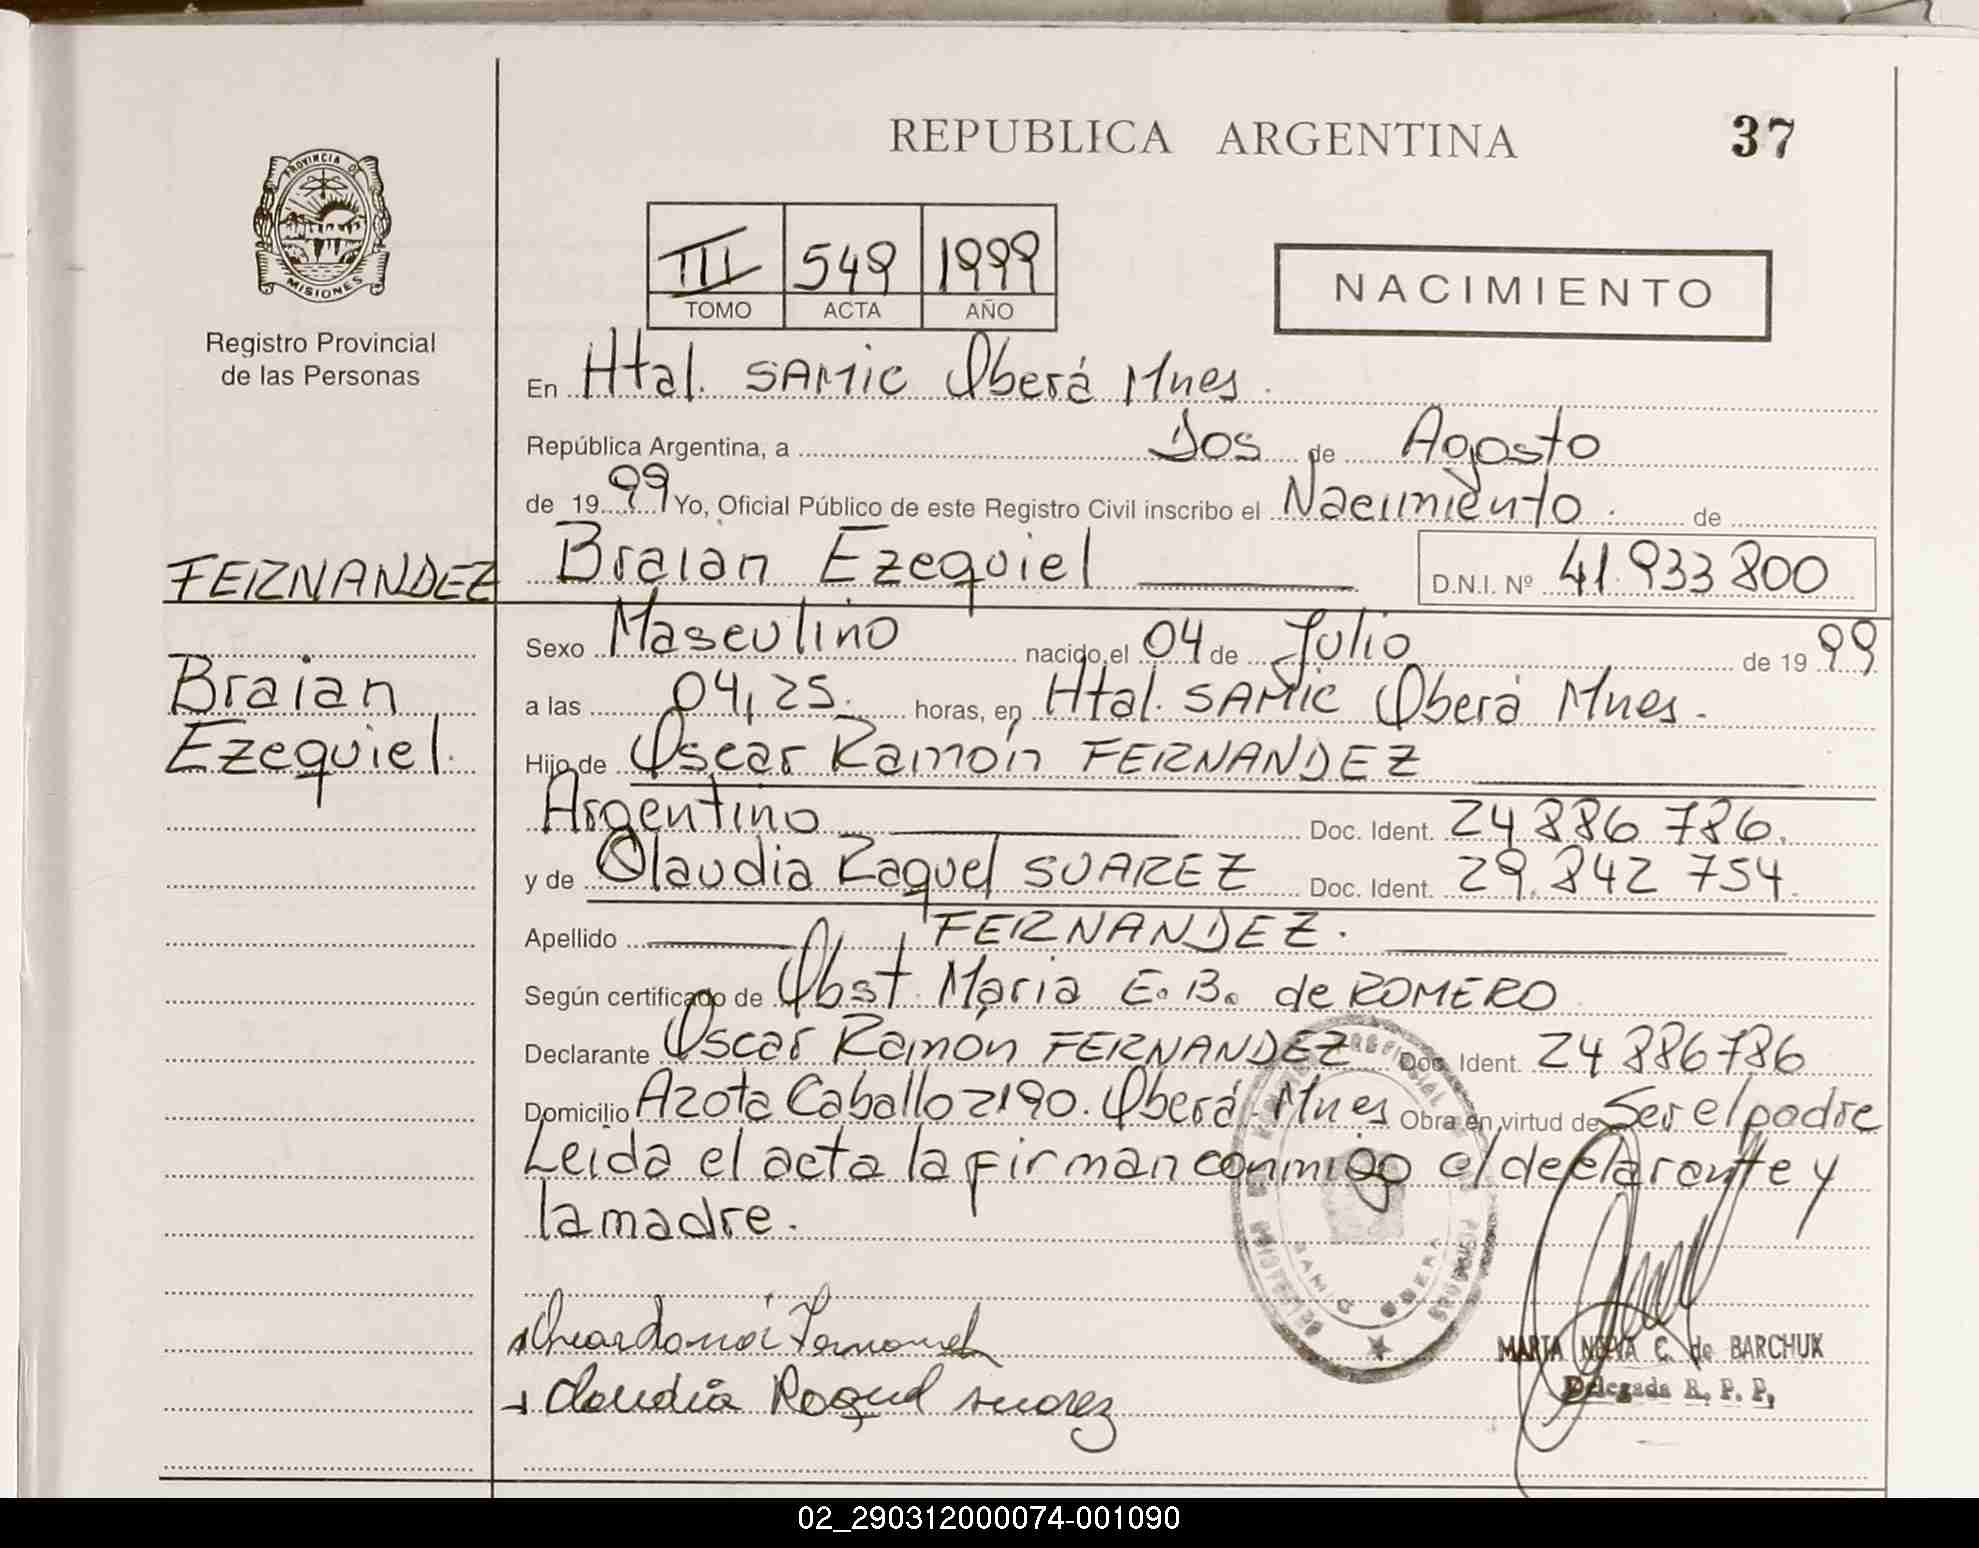 REPUBLICA ARGENTINA
37
PROVINCIA DE
MISIONES
Registro Provincial
de las Personas
III 549 1999
TOMO ACTA AÑO
NACIMIENTO
En Htal. SAMIC Oberá Mnes.
República Argentina, a Dos de Agosto
de 1999 Yo, Oficial Público de este Registro Civil inscribo el Nacimiento. de
FERNANDEZ Braian Ezequiel D.N.I. Nº 41.933 800
Sexo Masculino nacido el 04 de Julio de 1999
Braian
a las 04,25. horas, en Htal. SAMIC Oberá Mnes.
Ezequiel.
Hijo de Oscar Ramón FERNANDEZ
Argentino Doc. Ident. 24 886 786.
y de Claudia Raquel SUAREZ Doc. Ident. 29.842 754.
Apellido FERNANDEZ.
Según certificado de Obst. Maria E. B. de ROMERO
Declarante Oscar Ramón FERNANDEZ Doc. Ident. 24 886786
Domicilio Azota Caballo 2190. Oberá. Mnes Obra en virtud de Ser el padre
Leida el acta la firman conmigo el declarante y
la madre.
Claudia Raquel suarez
MARIA C. de BARCHUK
Delegada R. P. P.
02_290312000074-001090